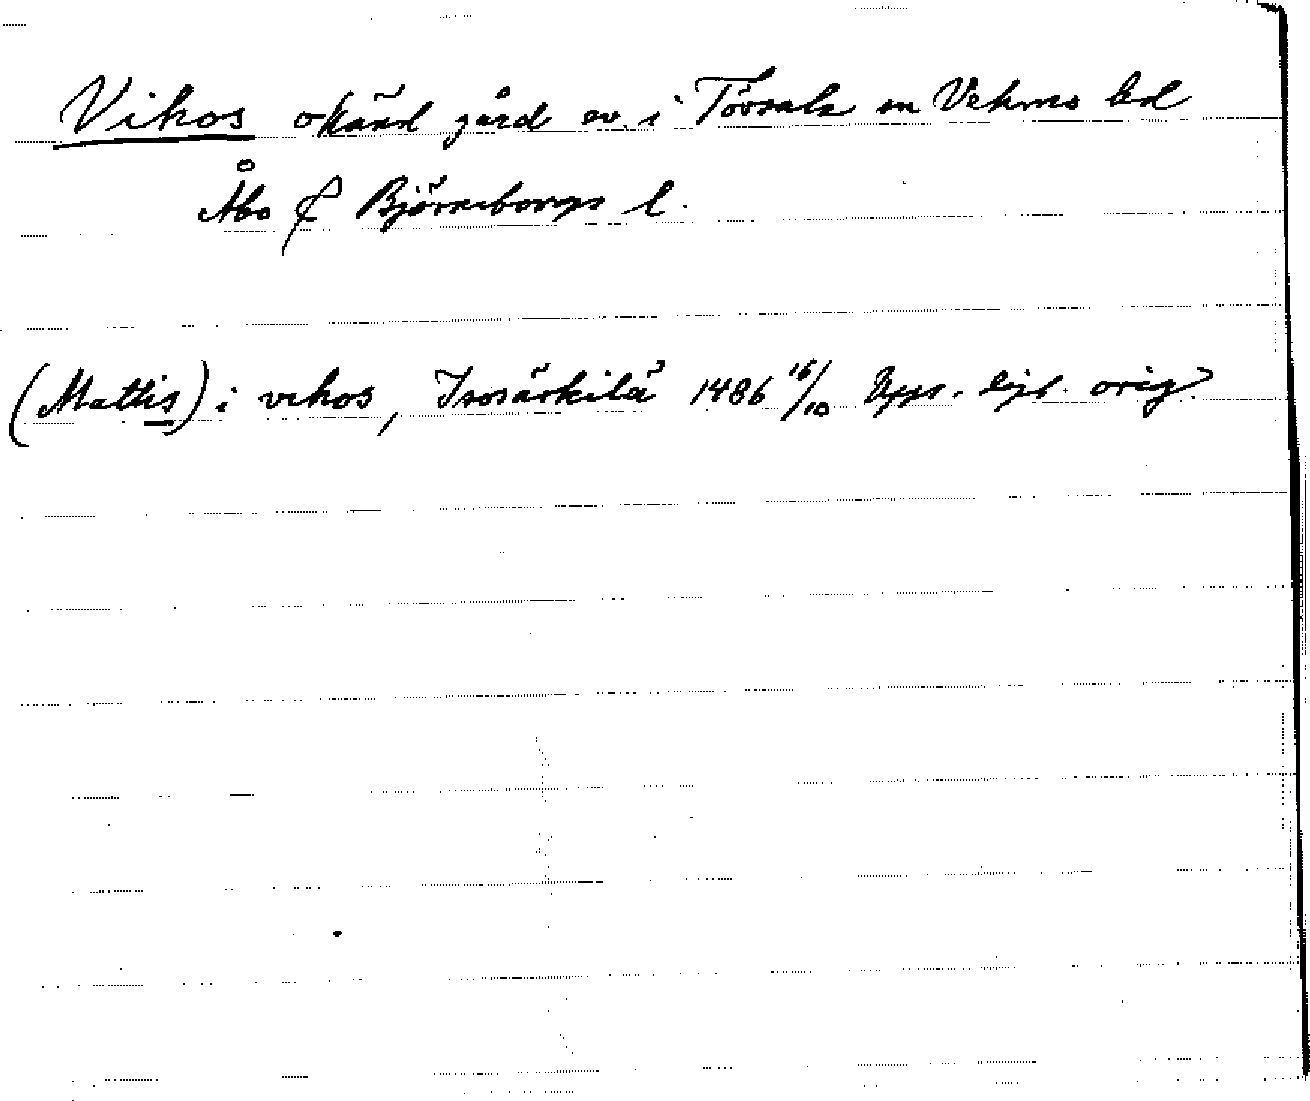 Vikos okänd gård ev. i Tövsala sn Vehmo hd
Åbo & Björneborgs l.
(Mattis) i vikos, Isosärkilä 1486 16/10 Upps. orig